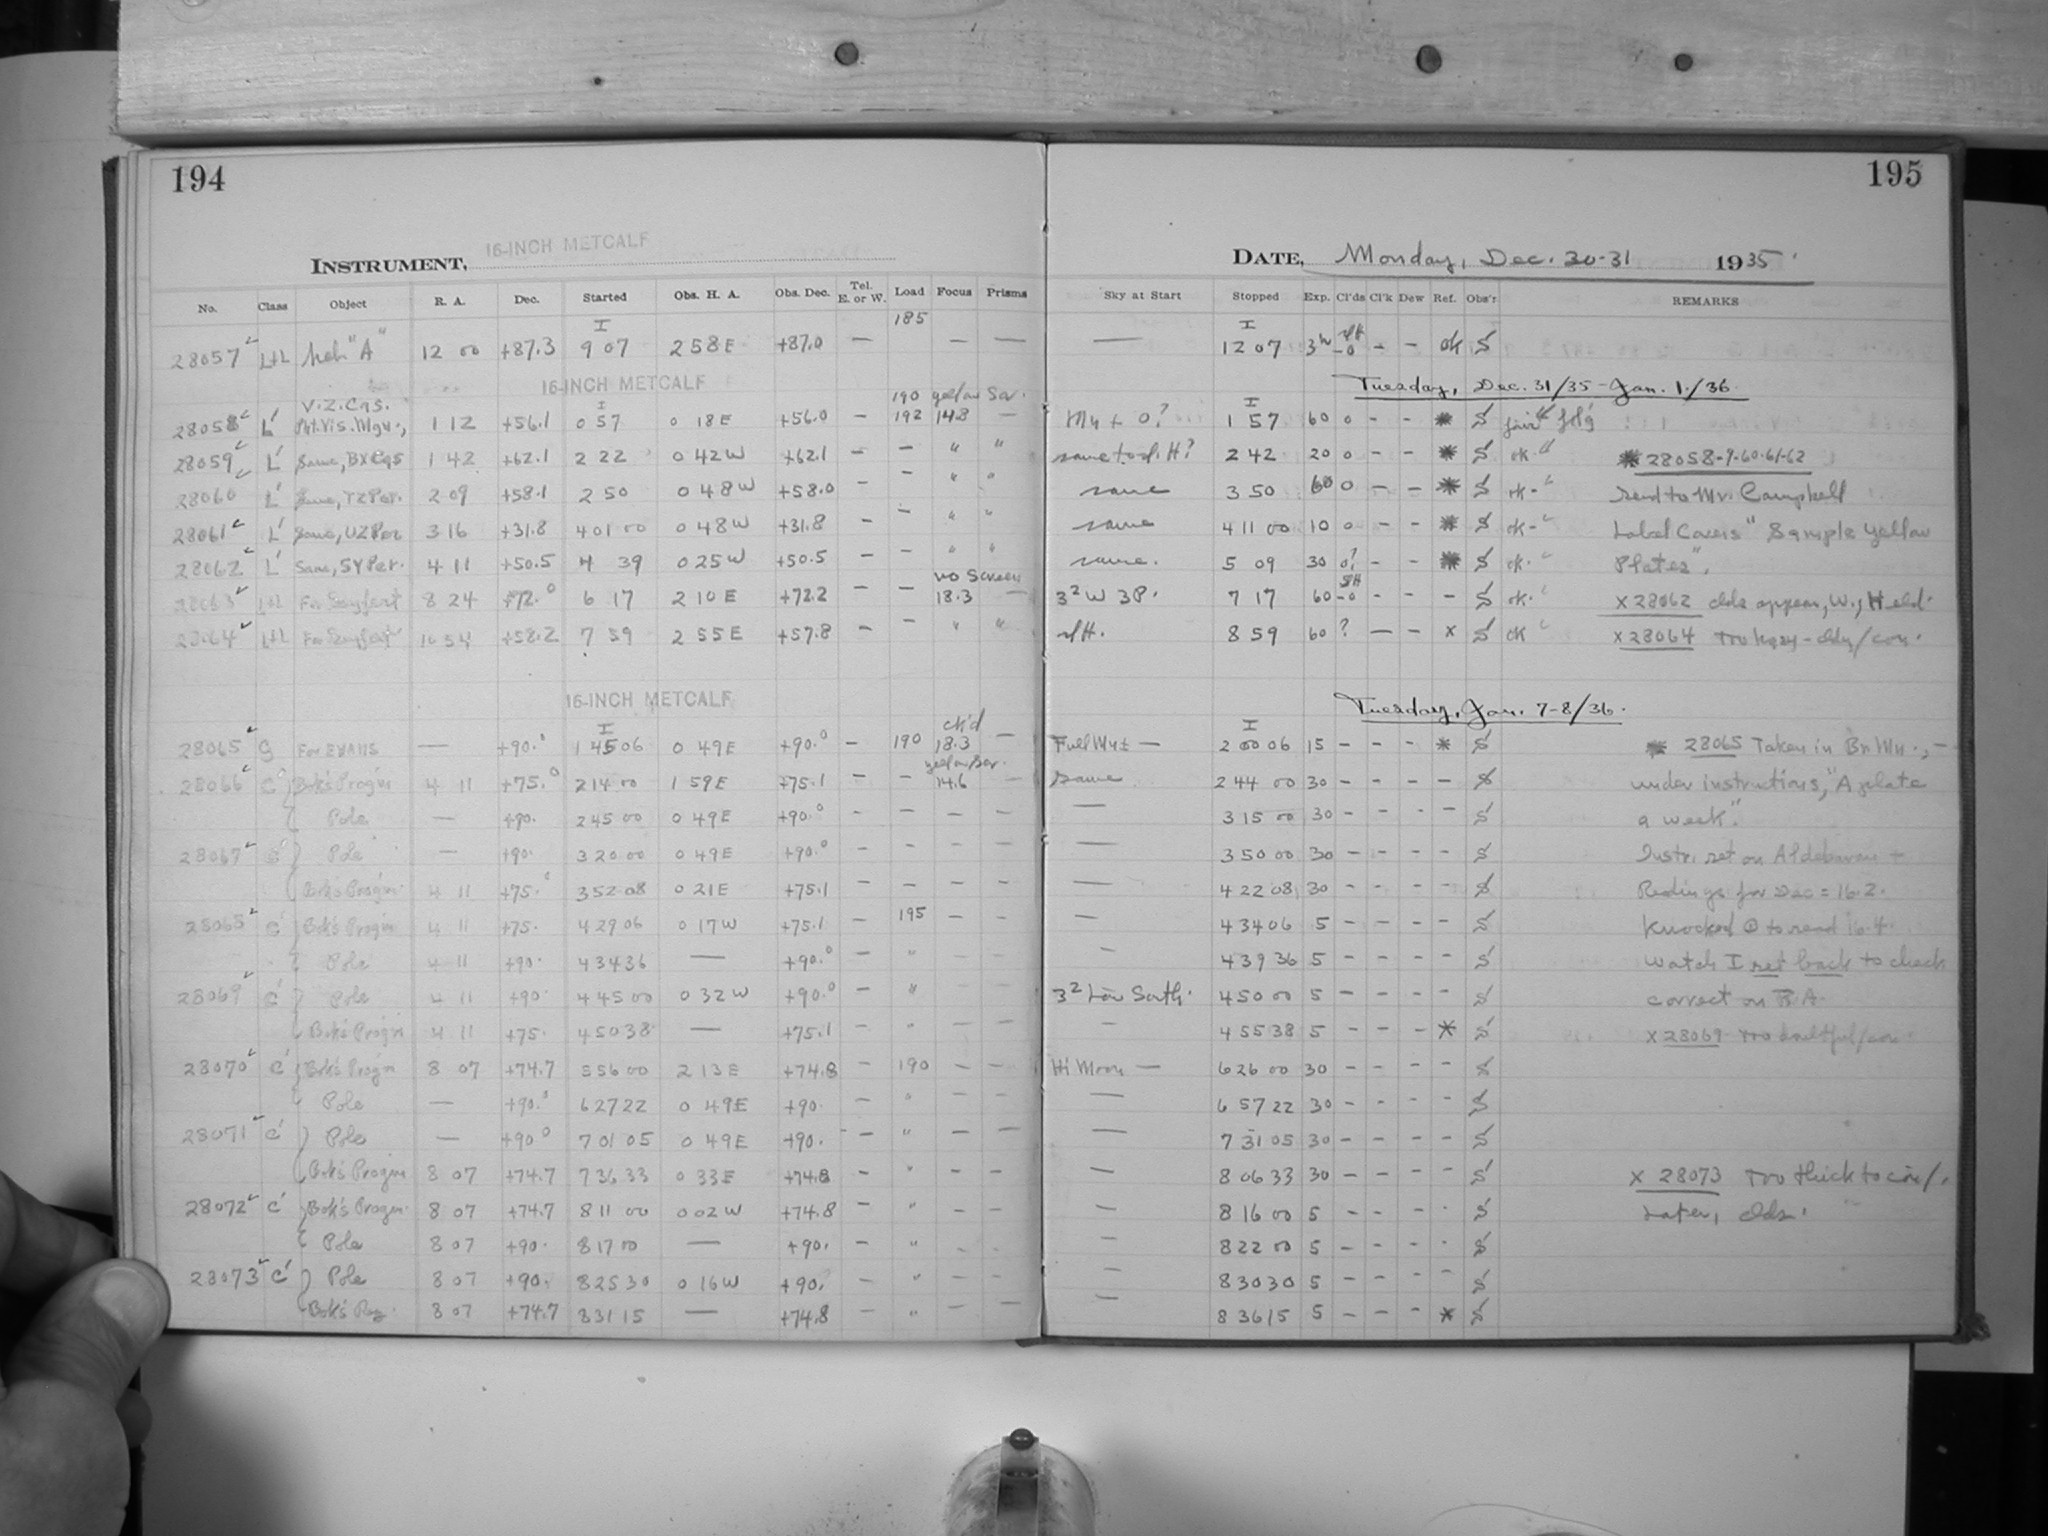 194
INSTRUMENT, 16-INCH METCALF
No. Class Object R. A. Dec. Started Obs. H. A. Obs. Dec. Tel. E. or W. Load Focus Prisms
185
I
28057 L+L "A" 12 00 +87.3 9 07 2 58 E +87.0 — — —
16-INCH METCALF
V.Z. Cas. I 190 yellow Scr.
28058 L' Pht. Vis. Mgn., 1 12 +56.1 0 57 0 18 E +56.0 192 14.8 —
28059 L' Same, BX Cas 1 42 +62.1 2 22 0 42 W +62.1 — — " "
28060 L' Same, TZ Per. 2 09 +58.1 2 50 0 48 W +58.0 — — " "
28061 L' Same, UZ Per 3 16 +31.8 4 01 00 0 48 W +31.8 — — " "
28062 L' Same, SY Per. 4 11 +50.5 4 39 0 25 W +50.5 — — " "
no Screen
28063 L+L For Seyfert 8 24 +72.0 6 17 2 10 E +72.2 — — 18.3 —
28064 L+L For Seyfert 10 54 +58.2 7 59 2 55 E +57.8 — — " "
16-INCH METCALF
I ck'd
28065 g For EVANS — +90.0 1 45 06 0 49 E +90.0 — 190 18.3 —
yellow Scr.
28066 C' Bok's Progm 4 11 +75.0 2 14 00 1 59 E +75.1 — — 14.6 —
Pole — +90. 2 45 00 0 49 E +90.0 — — — —
28067 C' Pole — +90. 3 20 00 0 49 E +90.0 — — — —
Bok's Progm. 4 11 +75.0 3 52 08 0 21 E +75.1 — — — —
28068 C' Bok's Progm 4 11 +75. 4 29 06 0 17 W +75.1 — 195 — —
Pole 4 11 +90. 4 34 36 — +90.0 — " — —
28069 C' Pole 4 11 +90 4 45 00 0 32 W +90.0 — " — —
Bok's Progm 4 11 +75. 4 50 38 — +75.1 — " — —
28070 C' Bok's Progm 8 07 +74.7 5 56 00 2 13 E +74.8 — 190 — —
Pole — +90.0 6 27 22 0 49 E +90. — " — —
28071 C' Pole — +90.0 7 01 05 0 49 E +90. — " — —
Bok's Progm 8 07 +74.7 7 36 33 0 33 E +74.8 — " — —
28072 C' Bok's Progm. 8 07 +74.7 8 11 00 0 02 W +74.8 — " — —
Pole 8 07 +90. 8 17 00 — +90. — " — —
28073 C' Pole 8 07 +90. 8 25 30 0 16 W +90. — " — —
Bok's Prog. 8 07 +74.7 8 31 15 — +74.8 — " — —
195
DATE, Monday, Dec. 30-31 1935
Sky at Start Stopped Exp. Cl'ds Cl'k Dew Ref. Obs'r REMARKS
I
— 12 07 3h -0 — — ok S
Tuesday, Dec. 31/35 - Jan. 1/36.
I
Mn + 0? 1 57 60 0 - - * S
2 42 20 0 - - * S ok * 28058-9-60-61-62
same 3 50 60 0 - - * S ok - Send to Mr. Campbell
same 4 11 00 10 0 - - * S ok - Label Covers "Sample Yellow
same. 5 09 30 0? - - * S ok. Plates".
3² W 3P. 7 17 60 -0 - - - S ok. x 28062 clds appear, W., Held.
slH. 8 59 60 ? — - x S ok x 28064 Too hazy - cldy/con.
Tuesday, Jan. 7-8/36.
I
Full Mn ± — 2 00 06 15 - - - * S * 28065 Taken in Br. Mn., —
same 2 44 00 30 - - - - S under instructions, "A plate
— 3 15 00 30 - - - - S a week".
— 3 50 00 30 - - - - S Instr. set on Aldebaran +
— 4 22 08 30 - - - - S Redings for Dec = 16.2.
— 4 34 06 5 - - - - S Knocked to read 16.4.
— 4 39 36 5 - - - - S Watch I set back to check
3² Low South. 4 50 00 5 - - - - S correct on R A.
— 4 55 38 5 - - - * S x 28069 Too doubtful/con.
Hi Moon — 6 26 00 30 - - - - S
— 6 57 22 30 - - - - S
— 7 31 05 30 - - - - S
— 8 06 33 30 - - - - S x 28073 Too thick to con/.
— 8 16 00 5 - - - - S Later, clds.
— 8 22 00 5 - - - - S
— 8 30 30 5 - - - - S
— 8 36 15 5 - - - * S